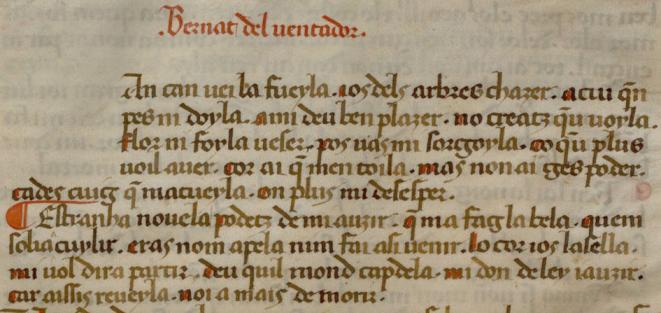 .Bernat del uentador.
An can uei la fueyla. ios dels arbres chazer. a cui q̄n
pes ni doyla. ami deu ben plazer. no creatz qū uoyla.
flor ni foyla uezer. pos uas mi sorgoyla. co qū plus
uoil auer. cor ai q̄ men toila. mas non ai ges poder.
cades cuig q̄ macueyla. on plus mi desesper.
¶ Estranha nouela podetz de mi auzir. q̄ ma fag la bela. quem
solia cuylir. eras nom apela nim fai asi uenir. lo cor ios lasella.
mi uol dira partir. deu quil mond capdela. mi don de ley iauzir.
car aissis reuerla. noi a mais de morir.